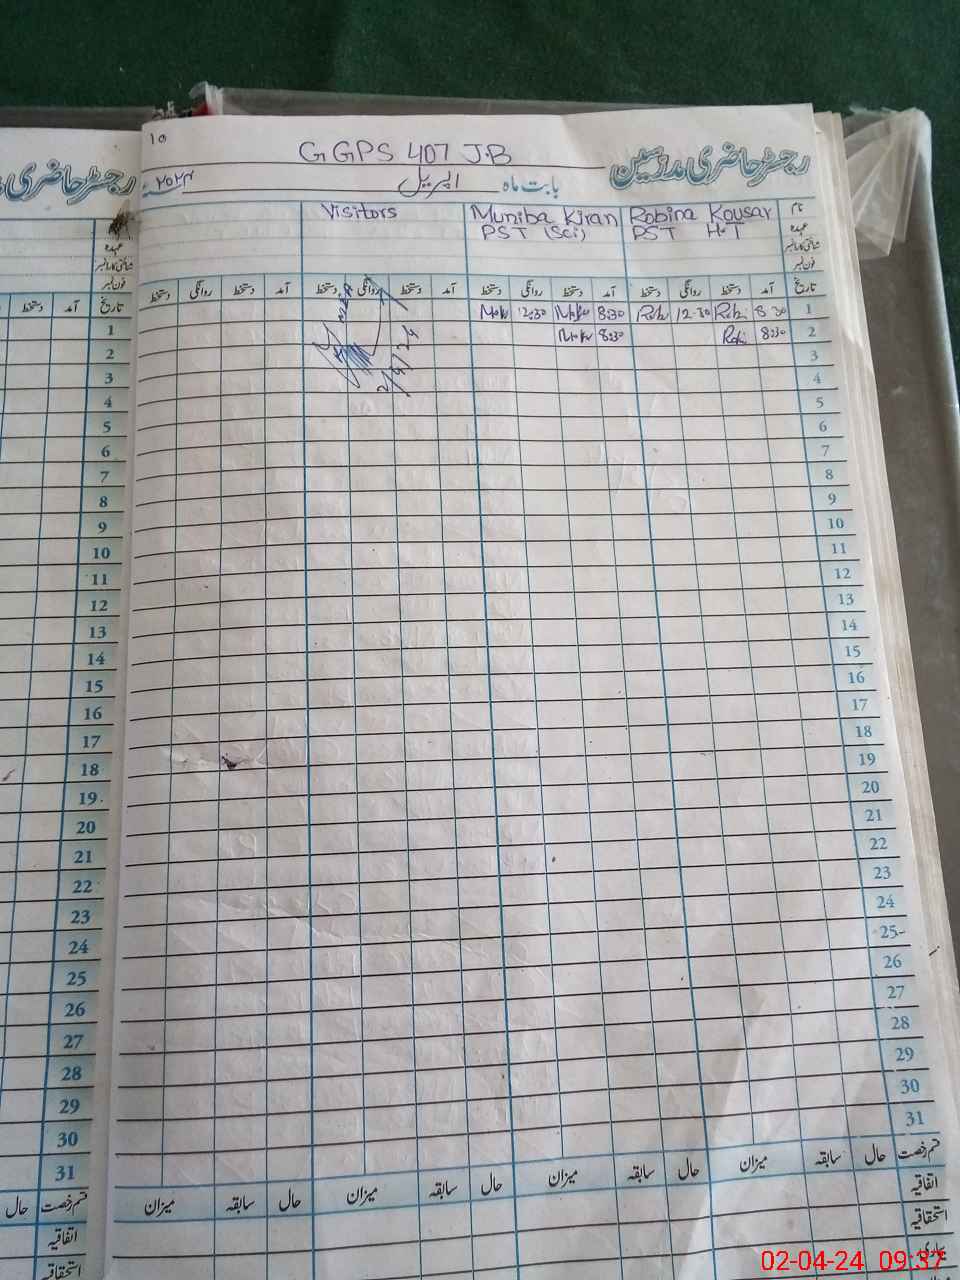 ۱۰
G GPS 407 J.B
رجسٹر حاضری مدرسین
بابت ماہ اپریل ۲۰۲۴ء
رجسٹر حاضری
نام Robina Kousar Muniba Kiran Visitors
عہدہ PST H.T PST (Sci)
شناختی کارڈ نمبر
فون نمبر
تاریخ آمد دستخط روانگی دستخط آمد دستخط روانگی دستخط آمد دستخط روانگی دستخط آمد دستخط روانگی دستخط
1 8:30 12:30 8:30 12:30
2 8:30 8:30 2/4/24
3
4
5
6
7
8
9
10
11
12
13
14
15
16
17
18
19
20
21
22
23
24
25
26
27
28
29
30
31
قسم رخصت حال سابقہ میزان حال سابقہ میزان حال سابقہ میزان حال سابقہ میزان
اتفاقیہ
استحقاقیہ
بیماری
عہدہ
شناختی کارڈ نمبر
فون نمبر
تاریخ آمد دستخط
1
2
3
4
5
6
7
8
9
10
11
12
13
14
15
16
17
18
19
20
21
22
23
24
25
26
27
28
29
30
31
قسم رخصت حال
اتفاقیہ
استحقاقیہ
02-04-24 09:37